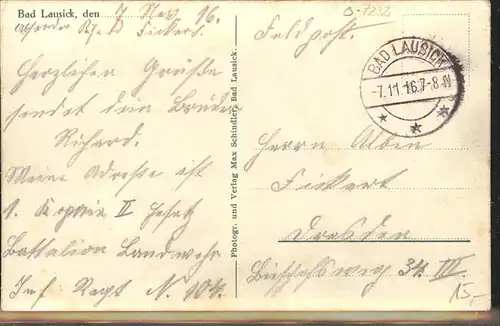 Bad Lausick, den 7 Nov 16.
Absender Rich. Fickert.
Herzlichen Grüße
sendet dein Bruder
Richard.
Meine Adresse ist
1. Kopnie II Ersatz
Battalion Landwehr
Inf. Regt N. 104.
Photogr. und Verlag Max Schindler, Bad Lausick.
0-7232
Feldpost.
BAD LAUSICK
-7.11.16.7-8.N
Herrn Albin
Fickert
Dresden
Bischofsweg 34 III
15,-